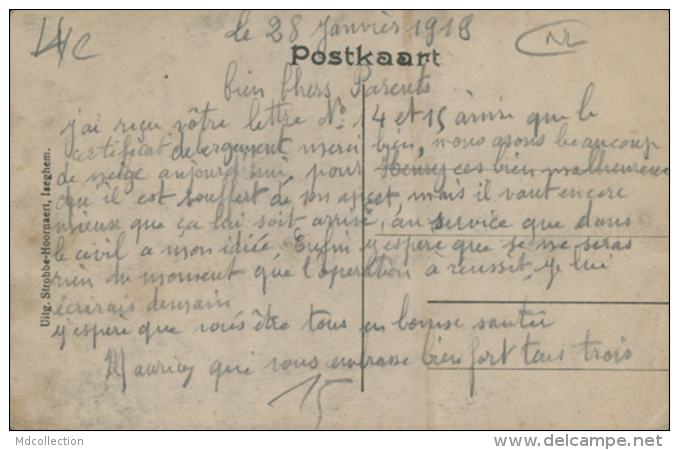 le 28 Janvièr 1918
Postkaart
bien Chers Parents
j'ai reçu vôtre lettre No. 14 et 15 ainsi que le
certificat de vergement merci bien, nous avons beaucoup
de neige aujourd'hui, pour bien malheureux
qu'il est souffert de son, mais il vaut encore
mieux que ça lui soit arrivé, au service que dans
le civil a mon idée. Enfin y'espère que se ne seras
rien du moment que l'opération à réussit, je lui
écrirais demain
y'espère que vous être tous en bonne santée
Mauricy qui vous embrasse bien fort tous trois
15
Uitg. Strobbe-Hoornaert, Iseghem.
Mdcollection
www.delcampe.net